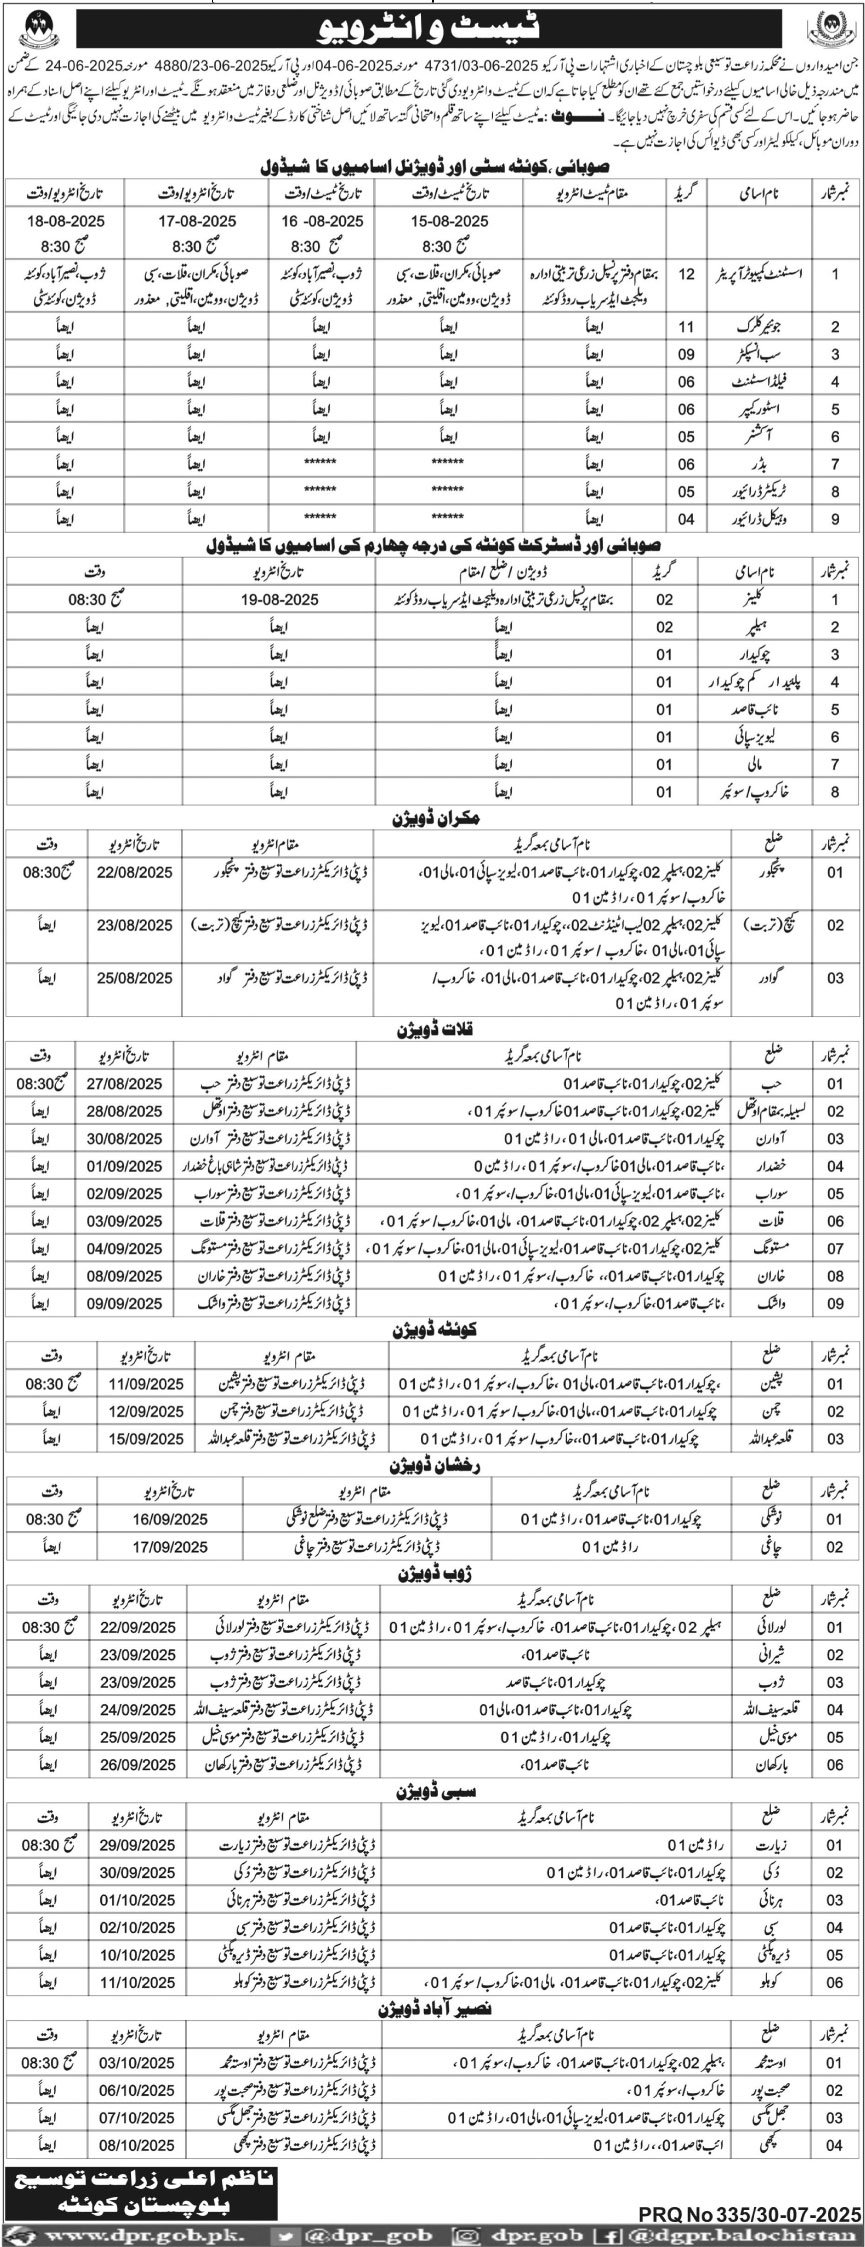 ٹیسٹ و انٹرویو
جن امیدواروں نے محکمہ زراعت توسیعی بلوچستان کے اخباری اشتہارات پی آر کیو 4731/03-06-2025 مورخہ 04-06-2025 اور پی آر کیو 4880/23-06-2025 مورخہ 24-06-2025 کے ضمن
میں مندرجہ ذیل خالی اسامیوں کیلئے درخواستیں جمع کئے تھے ان کو مطلع کیا جاتا ہے کہ ان کے ٹیسٹ و انٹرویو دی گئی تاریخ کے مطابق صوبائی / ڈویژنل اور ضلعی دفاتر میں منعقد ہونگے۔ ٹیسٹ اور انٹرویو کیلئے اپنے اصل اسناد کے ہمراہ
حاضر ہو جائیں۔ اس کے لئے کسی قسم کی سفری خرچ نہیں دیا جائیگا۔ نوٹ:۔ ٹیسٹ کیلئے اپنے ساتھ قلم و امتحانی گتہ ساتھ لائیں اصل شناختی کارڈ کے بغیر ٹیسٹ و انٹرویو میں بیٹھنے کی اجازت نہیں دی جائیگی اور ٹیسٹ کے
دوران موبائل، کیلکولیٹر اور کسی بھی ڈیوائس کی اجازت نہیں ہے۔
صوبائی، کوئٹہ سٹی اور ڈویژنل اسامیوں کا شیڈول
نمبر شمار نام اسامی گریڈ مقام ٹیسٹ انٹرویو تاریخ ٹیسٹ/وقت تاریخ ٹیسٹ/وقت تاریخ انٹرویو/وقت تاریخ انٹرویو/وقت
15-08-2025 16 -08-2025 17-08-2025 18-08-2025
صبح 8:30 صبح 8:30 صبح 8:30 صبح 8:30
1 اسسٹنٹ کمپیوٹر آپریٹر 12 بمقام دفتر پرنسپل زرعی تربیتی ادارہ صوبائی، مکران، قلات، سبی ژوب، نصیر آباد، کوئٹہ صوبائی، مکران، قلات، سبی ژوب، نصیر آباد، کوئٹہ
ویلجٹ ایڈ سریاب روڈ کوئٹہ ڈویژن، وومین، اقلیتی، معذور ڈویژن، کوئٹہ سٹی ڈویژن، وومین، اقلیتی، معذور ڈویژن، کوئٹہ سٹی
2 جونیئر کلرک 11 ایضاً ایضاً ایضاً ایضاً ایضاً
3 سب انسپکٹر 09 ایضاً ایضاً ایضاً ایضاً ایضاً
4 فیلڈ اسسٹنٹ 06 ایضاً ایضاً ایضاً ایضاً ایضاً
5 اسٹور کیپر 06 ایضاً ایضاً ایضاً ایضاً ایضاً
6 آکشنر 05 ایضاً ایضاً ایضاً ایضاً ایضاً
7 بڈر 06 ایضاً ****** ****** ایضاً ایضاً
8 ٹریکٹر ڈرائیور 05 ایضاً ****** ****** ایضاً ایضاً
9 وہیکل ڈرائیور 04 ایضاً ****** ****** ایضاً ایضاً
صوبائی اور ڈسٹرکٹ کوئٹہ کی درجہ چہارم کی اسامیوں کا شیڈول
نمبر شمار نام اسامی گریڈ ڈویژن / ضلع / مقام تاریخ انٹرویو وقت
1 کلینر 02 بمقام پرنسپل زرعی تربیتی ادارہ ویلجٹ ایڈ سریاب روڈ کوئٹہ 19-08-2025 صبح 08:30
2 ہیلپر 02 ایضاً ایضاً ایضاً
3 چوکیدار 01 ایضاً ایضاً ایضاً
4 پلیدار کم چوکیدار 01 ایضاً ایضاً ایضاً
5 نائب قاصد 01 ایضاً ایضاً ایضاً
6 لیویز سپائی 01 ایضاً ایضاً ایضاً
7 مالی 01 ایضاً ایضاً ایضاً
8 خاکروپ / سوئپر 01 ایضاً ایضاً ایضاً
مکران ڈویژن
نمبر شمار ضلع نام آسامی بمعہ گریڈ مقام انٹرویو تاریخ انٹرویو وقت
01 پنجگور کلینر 02، ہیلپر 02، چوکیدار 01، نائب قاصد 01، لیویز سپائی 01، مالی 01، ڈپٹی ڈائریکٹر زراعت توسیع دفتر پنجگور 22/08/2025 صبح 08:30
خاکروب / سوئپر 01، راڈ مین 01
02 کیچ (تربت) کلینر 02، ہیلپر 02 لیب اٹینڈنٹ 02،، چوکیدار 01، نائب قاصد 01، لیویز ڈپٹی ڈائریکٹر زراعت توسیع دفتر کیچ (تربت) 23/08/2025 ایضاً
سپائی 01، مالی 01، خاکروب / سوئپر 01، راڈ مین 01،
03 گوادر کلینر 02، ہیلپر 02، چوکیدار 01، نائب قاصد 01، مالی 01، خاکروب / ڈپٹی ڈائریکٹر زراعت توسیع دفتر گواد 25/08/2025 ایضاً
سوئپر 01، راڈ مین 01
قلات ڈویژن
نمبر شمار ضلع نام آسامی بمعہ گریڈ مقام انٹرویو تاریخ انٹرویو وقت
01 حب کلینر 02، چوکیدار 01، نائب قاصد 01 ڈپٹی ڈائریکٹر زراعت توسیع دفتر حب 27/08/2025 صبح 08:30
02 لسبیلہ بمقام اوتھل کلینر 02، چوکیدار 01، نائب قاصد 01 خاکروب / سوئپر 01، ڈپٹی ڈائریکٹر زراعت توسیع دفتر اوتھل 28/08/2025 ایضاً
03 آوارن چوکیدار 01، نائب قاصد 01، مالی 01، راڈ مین 01 ڈپٹی ڈائریکٹر زراعت توسیع دفتر آوارن 30/08/2025 ایضاً
04 خضدار ،نائب قاصد 01، مالی 01 خاکروب /، سوئپر 01، راڈ مین 0 ڈپٹی ڈائریکٹر زراعت توسیع دفتر شاہی باغ خضدار 01/09/2025 ایضاً
05 سوراب ،نائب قاصد 01، لیویز سپائی 01، مالی 01، خاکروب /، سوئپر 01، ڈپٹی ڈائریکٹر زراعت توسیع دفتر سوراب 02/09/2025 ایضاً
06 قلات کلینر 02، ہیلپر 02، چوکیدار 01، نائب قاصد 01، مالی 01، خاکروب / سوئپر 01، ڈپٹی ڈائریکٹر زراعت توسیع دفتر قلات 03/09/2025 ایضاً
07 مستونگ کلینر 02، چوکیدار 01، نائب قاصد 01، لیویز سپائی 01، مالی 01، خاکروب /، سوئپر 01، ڈپٹی ڈائریکٹر زراعت توسیع دفتر مستونگ 04/09/2025 ایضاً
08 خاران چوکیدار 01، نائب قاصد 01،، خاکروب /، سوئپر 01، راڈ مین 01 ڈپٹی ڈائریکٹر زراعت توسیع دفتر خاران 08/09/2025 ایضاً
09 واشک ،نائب قاصد 01، خاکروب /، سوئپر 01، ڈپٹی ڈائریکٹر زراعت توسیع دفتر واشک 09/09/2025 ایضاً
کوئٹہ ڈویژن
نمبر شمار ضلع نام آسامی بمعہ گریڈ مقام انٹرویو تاریخ انٹرویو وقت
01 پشین ،چوکیدار 01، نائب قاصد 01، مالی 01، خاکروب /، سوئپر 01، راڈ مین 01 ڈپٹی ڈائریکٹر زراعت توسیع دفتر پشین 11/09/2025 صبح 08:30
02 چمن چوکیدار 01، نائب قاصد 01،، مالی 01، خاکروب /، سوئپر 01، راڈ مین 01 ڈپٹی ڈائریکٹر زراعت توسیع دفتر چمن 12/09/2025 ایضاً
03 قلعہ عبداللہ چوکیدار 01، نائب قاصد 01،، خاکروب /، سوئپر 01، راڈ مین 01 ڈپٹی ڈائریکٹر زراعت توسیع دفتر قلعہ عبداللہ 15/09/2025 ایضاً
رخشان ڈویژن
نمبر شمار ضلع نام آسامی بمعہ گریڈ مقام انٹرویو تاریخ انٹرویو وقت
01 نوشکی چوکیدار 01، نائب قاصد 01، راڈ مین 01 ڈپٹی ڈائریکٹر زراعت توسیع دفتر ضلع نوشکی 16/09/2025 صبح 08:30
02 چاغی راڈ مین 01 ڈپٹی ڈائریکٹر زراعت توسیع دفتر چاغی 17/09/2025 ایضاً
ژوب ڈویژن
نمبر شمار ضلع نام آسامی بمعہ گریڈ مقام انٹرویو تاریخ انٹرویو وقت
01 لورلائی ہیلپر 02، چوکیدار 01، نائب قاصد 01، خاکروب /، سوئپر 01، راڈ مین 01 ڈپٹی ڈائریکٹر زراعت توسیع دفتر لورلائی 22/09/2025 صبح 08:30
02 شیرانی نائب قاصد 01، ڈپٹی ڈائریکٹر زراعت توسیع دفتر ژوب 23/09/2025 ایضاً
03 ژوب چوکیدار 01، نائب قاصد ڈپٹی ڈائریکٹر زراعت توسیع دفتر ژوب 23/09/2025 ایضاً
04 قلعہ سیف اللہ چوکیدار 01، نائب قاصد 01، مالی 01 ڈپٹی ڈائریکٹر زراعت توسیع دفتر قلعہ سیف اللہ 24/09/2025 ایضاً
05 موسی خیل چوکیدار 01، راڈ مین 01 ڈپٹی ڈائریکٹر زراعت توسیع دفتر موسی خیل 25/09/2025 ایضاً
06 بارکھان نائب قاصد 01، ڈپٹی ڈائریکٹر زراعت توسیع دفتر بارکھان 26/09/2025 ایضاً
سبی ڈویژن
نمبر شمار ضلع نام آسامی بمعہ گریڈ مقام انٹرویو تاریخ انٹرویو وقت
01 زیارت راڈ مین 01 ڈپٹی ڈائریکٹر زراعت توسیع دفتر زیارت 29/09/2025 صبح 08:30
02 دُکی چوکیدار 01، نائب قاصد 01، راڈ مین 01 ڈپٹی ڈائریکٹر زراعت توسیع دفتر دُکی 30/09/2025 ایضاً
03 ہرنائی نائب قاصد 01، ڈپٹی ڈائریکٹر زراعت توسیع دفتر ہرنائی 01/10/2025 ایضاً
04 سبی چوکیدار 01، نائب قاصد 01 ڈپٹی ڈائریکٹر زراعت توسیع دفتر سبی 02/10/2025 ایضاً
05 ڈیرہ بگٹی چوکیدار 01، نائب قاصد 01 ڈپٹی ڈائریکٹر زراعت توسیع دفتر ڈیرہ بگٹی 10/10/2025 ایضاً
06 کوہلو کلینر 02، چوکیدار 01، نائب قاصد 01، مالی 01، خاکروب / سوئپر 01، ڈپٹی ڈائریکٹر زراعت توسیع دفتر کوہلو 11/10/2025 ایضاً
نصیر آباد ڈویژن
نمبر شمار ضلع نام آسامی بمعہ گریڈ مقام انٹرویو تاریخ انٹرویو وقت
01 اوستہ محمد ،ہیلپر 02، چوکیدار 01، نائب قاصد 01، خاکروب /، سوئپر 01، ڈپٹی ڈائریکٹر زراعت توسیع دفتر اوستہ محمد 03/10/2025 صبح 08:30
02 صحبت پور خاکروب /، سوئپر 01، ڈپٹی ڈائریکٹر زراعت توسیع دفتر صحبت پور 06/10/2025 ایضاً
03 جھل مگسی چوکیدار 01، نائب قاصد 01، لیویز سپائی 01، مالی 01، راڈ مین 01 ڈپٹی ڈائریکٹر زراعت توسیع دفتر جھل مگسی 07/10/2025 ایضاً
04 کچھی ائب قاصد 01،، راڈ مین 01 ڈپٹی ڈائریکٹر زراعت توسیع دفتر کچھی 08/10/2025 ایضاً
ناظم اعلی زراعت توسیع
بلوچستان کوئٹہ
PRQ No 335/30-07-2025
www.dpr.gob.pk. @dpr_gob dpr.gob @dgpr.balochistan